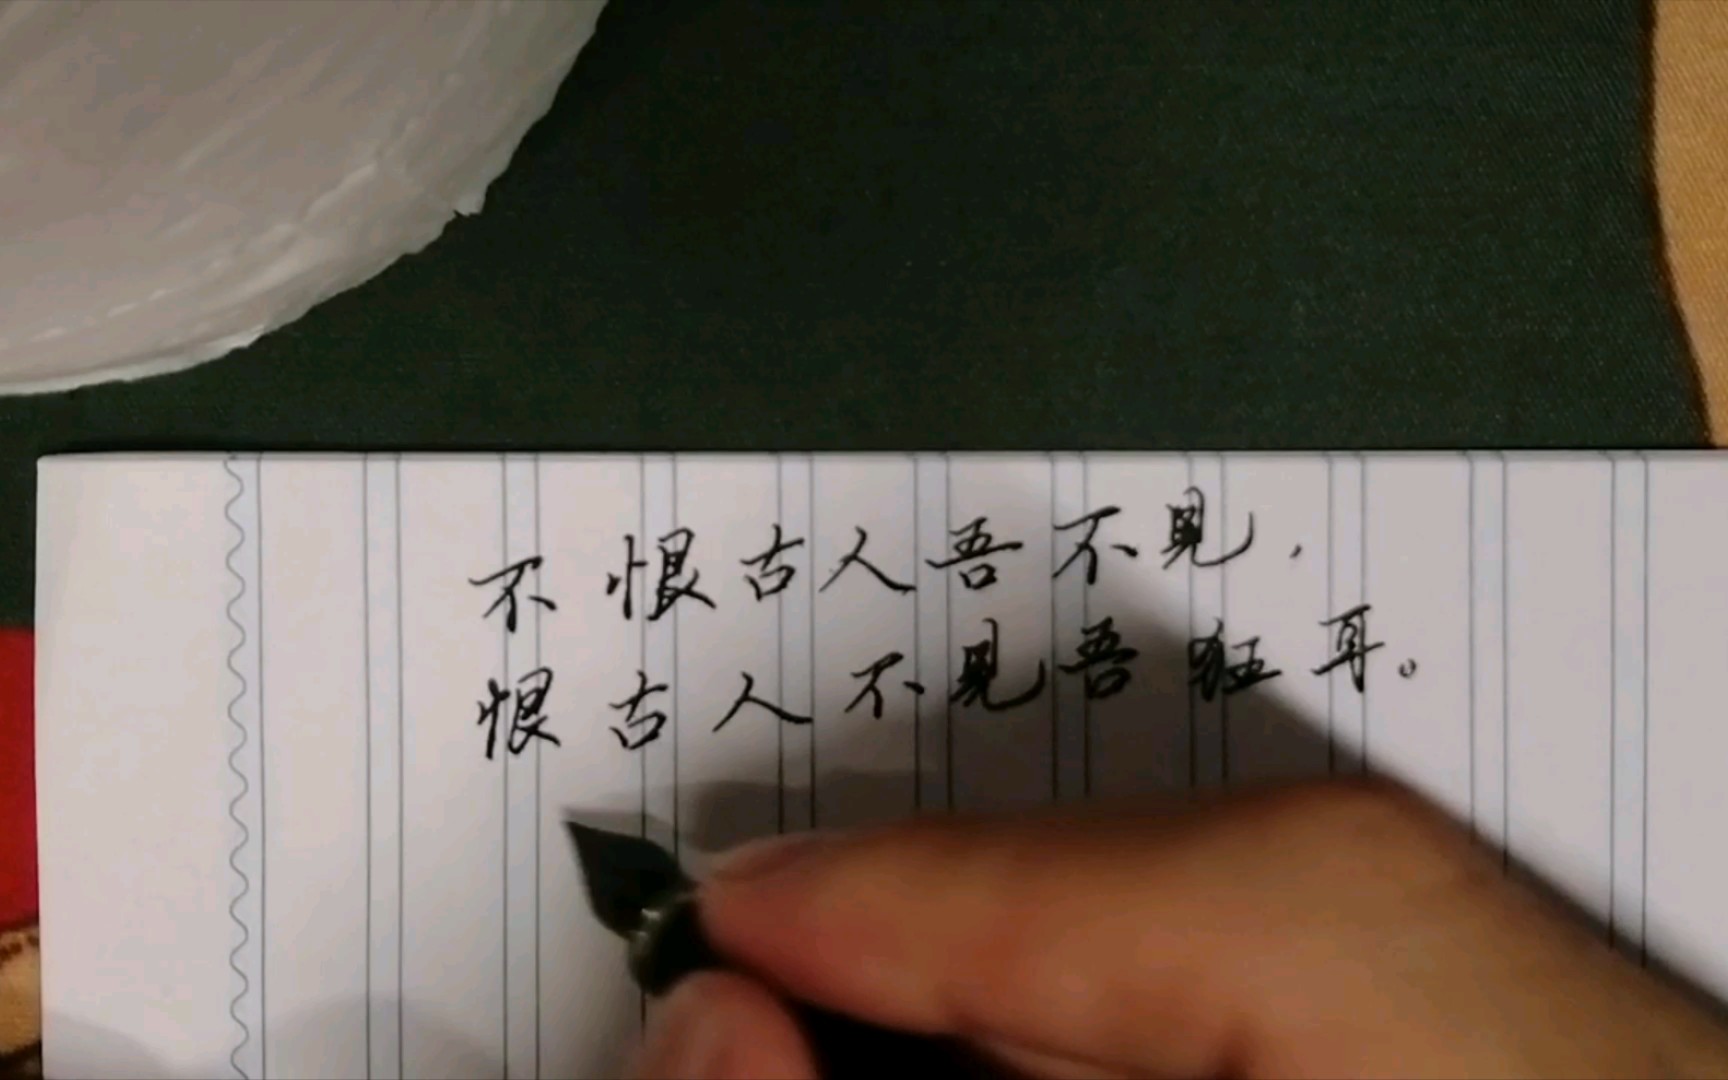 不恨古人吾不见，
恨古人不见吾狂耳。